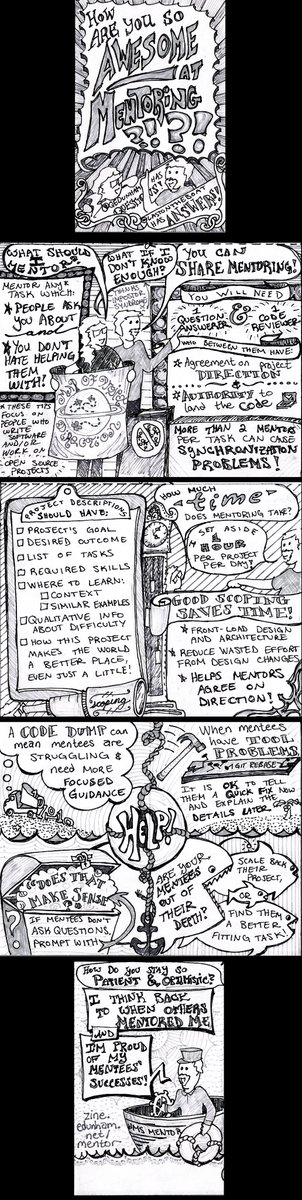 HOW
ARE YOU SO
AWESOME
AT
MENTORING
?!?!
EDUNHAM
HAS
ANSWERS!
WHAT SHOULD
I
MENTOR?
MENTOR ANY*
TASK WHICH:
* PEOPLE ASK
YOU ABOUT
and
* YOU DON'T
HATE HELPING
THEM
WITH!
* THESE TIPS
FOCUS ON
PEOPLE WHO
WRITE
SOFTWARE
AND/OR
WORK ON
OPEN SOURCE
PROJECTS
WHAT IF I
DON'T KNOW
ENOUGH?
THANKS,
IMPOSTER
SYNDROME
YOU CAN
SHARE MENTORING!
YOU WILL NEED
1
QUESTION
ANSWERER
&
1
CODE
REVIEWER
WHO BETWEEN THEM HAVE:
* Agreement on project
DIRECTION
&
* AUTHORITY to
land the CODE
MORE THAN 2 MENTORS
PER TASK CAN CASE
SYNCHRONIZATION
PROBLEMS!
PROJECT DESCRIPTIONS
SHOULD HAVE:
PROJECT'S GOAL
DESIRED OUTCOME
LIST OF TASKS
REQUIRED SKILLS
WHERE TO LEARN:
CONTEXT
SIMILAR EXAMPLES
QUALITATIVE INFO
ABOUT DIFFICULTY
HOW THIS PROJECT
MAKES THE WORLD
A BETTER PLACE,
EVEN JUST A LITTLE!
scoping
HOW MUCH
time
DOES MENTORING TAKE?
SET ASIDE
1
HOUR
PER PROJECT
PER DAY!
GOOD SCOPING
SAVES TIME!
* FRONT-LOAD DESIGN
AND ARCHITECTURE
* REDUCE WASTED EFFORT
FROM DESIGN CHANGES
* HELPS MENTORS
AGREE ON
DIRECTION!
A CODE DUMP can
mean mentees are
STRUGGLING &
need MORE
FOCUSED
GUIDANCE
When mentees
have TOOL
PROBLEMS
GIT REBASE
IT IS OK TO TELL
THEM A QUICK FIX NOW
AND EXPLAIN THE
DETAILS LATER.
HELP!
"DOES THAT
MAKE SENSE?"
IF MENTEES DON'T
ASK QUESTIONS,
PROMPT WITH
ARE YOUR
MENTEES
OUT OF
THEIR
DEPTH?
SCALE BACK
THEIR
PROJECT,
OR
FIND THEM
A BETTER
FITTING TASK!
HOW DO YOU STAY SO
PATIENT & OPTIMISTIC?
I THINK BACK
TO WHEN OTHERS
MENTORED ME
AND
I'M PROUD
OF MY
MENTEES'
SUCCESSES!
zine.
edunham.
net/
mentor
HMS MENTOR